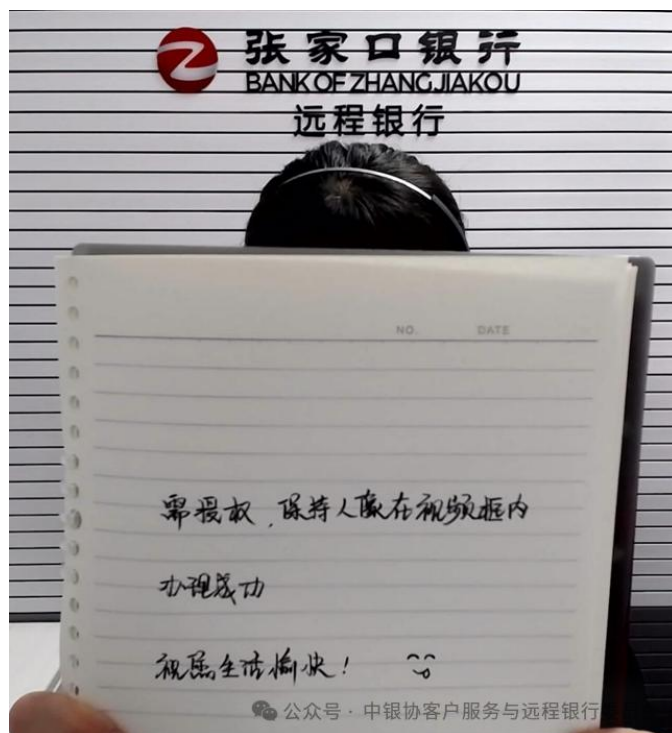 张家口银行
BANK OF ZHANGJIAKOU
远程银行
NO. DATE
需授权,保持人像在视频框内
办理成功
祝您生活愉快!
公众号 · 中银协客户服务与远程银行